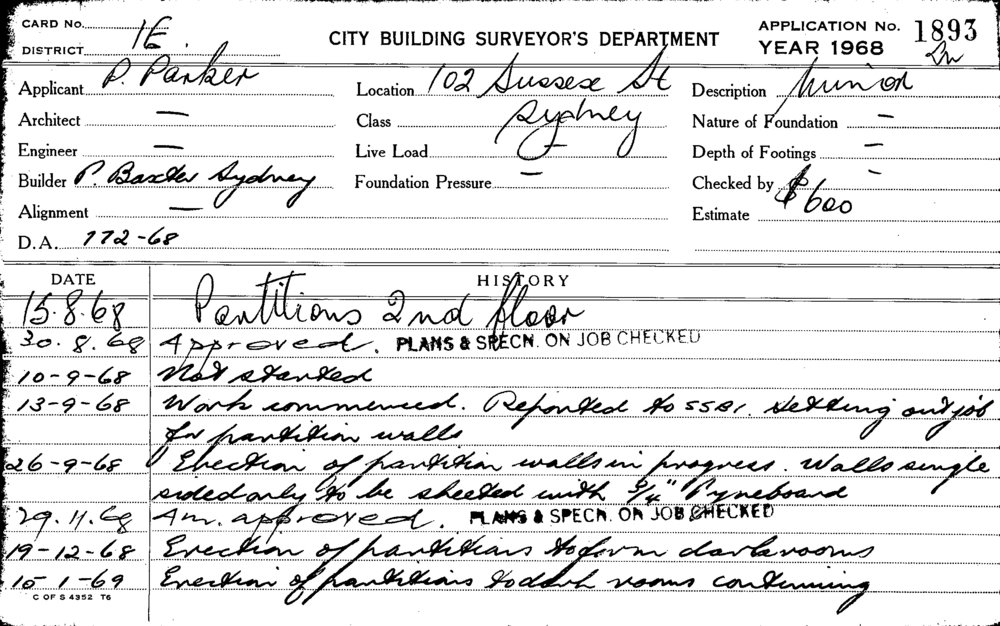 CARD No. 1E.
DISTRICT
CITY BUILDING SURVEYOR'S DEPARTMENT
APPLICATION No. 1893
YEAR 1968
Applicant P. Parker
Location 102 Sussex St
Sydney
Description Minor
Architect —
Class
Nature of Foundation —
Engineer —
Live Load —
Depth of Footings —
Builder P. Baxter Sydney
Foundation Pressure —
Checked by -
Alignment —
Estimate $600
D.A. 772-68
DATE HISTORY
15.8.68 Partitions 2nd floor
30.8.68 Approved. PLANS & SPECN. ON JOB CHECKED
10-9-68 Not started
13-9-68 Work commenced. Reported to SSBI. Setting out job
for partition walls
26-9-68 Erection of partition walls in progress. Walls single
sided only to be sheeted with 3/4" Pyneboard
29.11.68 Am. approved. PLANS & SPECN. ON JOB CHECKED
19-12-68 Erection of partitions to form darkrooms
15-1-69 Erection of partitions to dark rooms continuing
C OF S 4352 T6